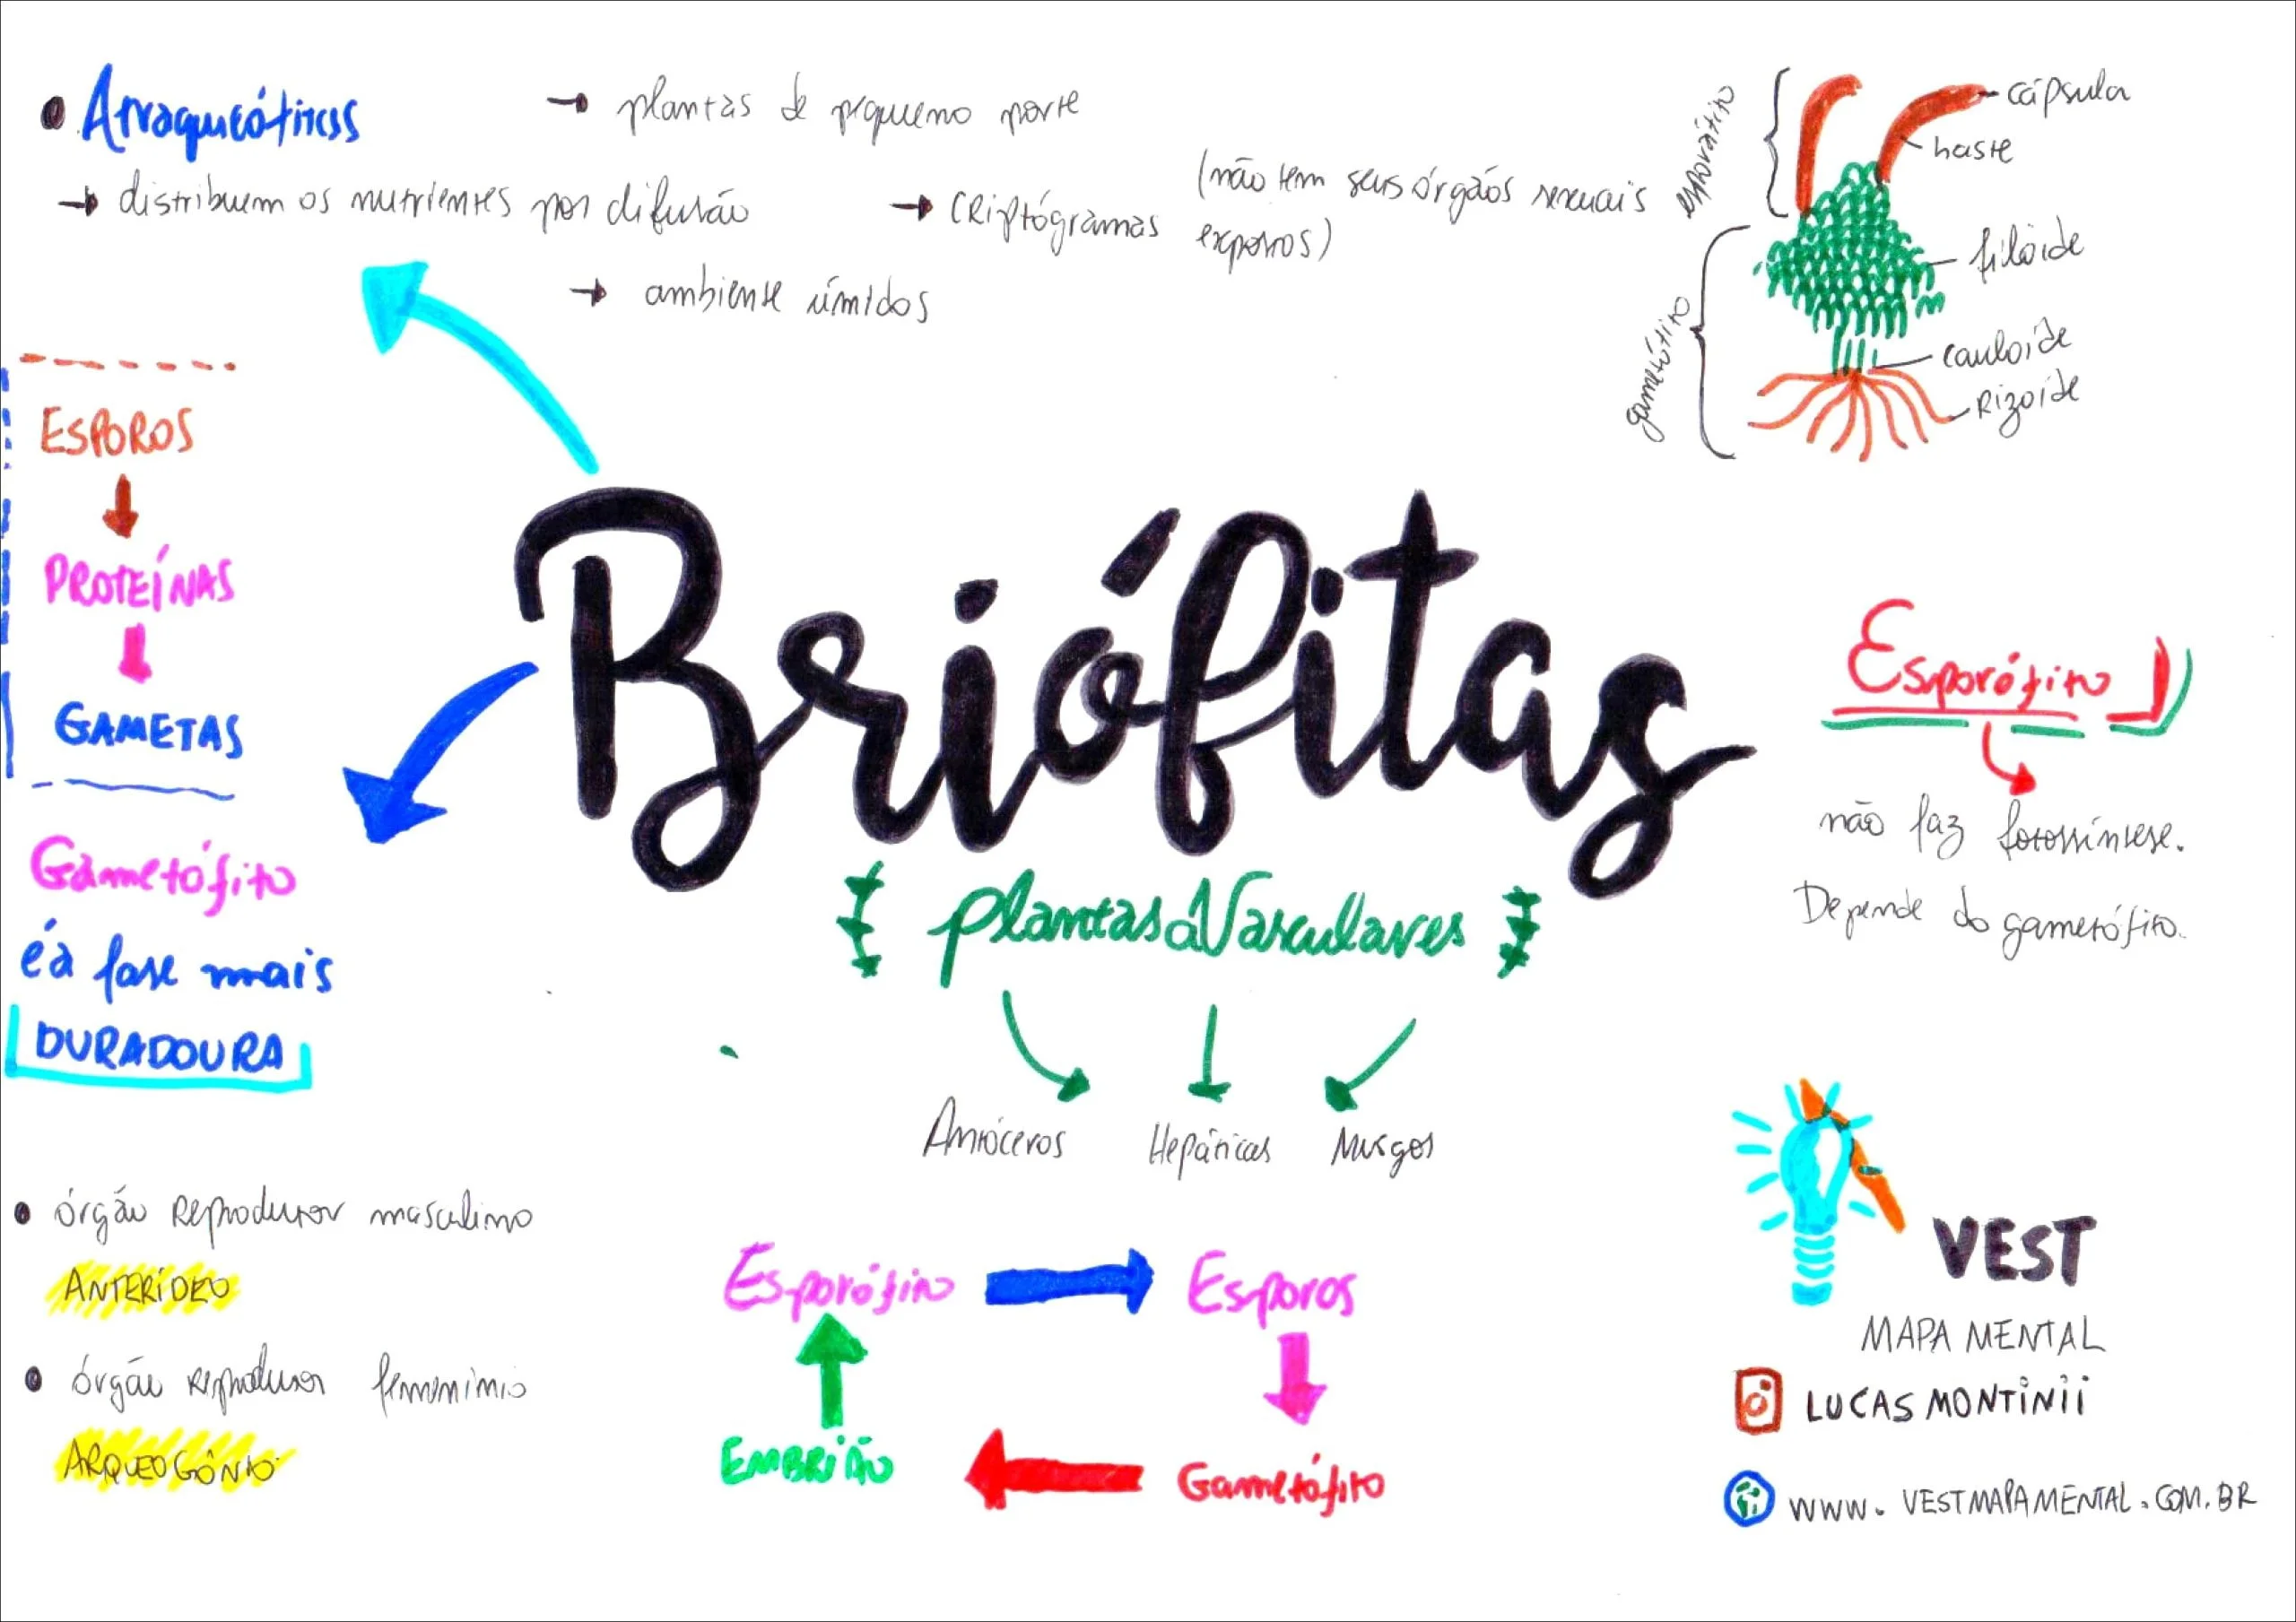 Atraqueófitas
→ plantas de pequeno porte
→ distribuem os nutrientes por difusão
→ criptógramas (não tem seus órgãos sexuais expostos)
→ ambiente úmidos
esporófito
cápsula
haste
gametófito
filóide
caulóide
Rizoide
ESPOROS
PROTEÍNAS
GAMETAS
Briófitas
plantas aVasculares
Antóceros
Hepáticas
Musgos
Esporófito
não faz fotossíntese.
Depende do gametófito.
Gametófito
é a fase mais
DURADOURA
órgão reprodutor masculino
ANTERÍDEO
órgão reprodutor femeninio
ARQUEOGÔNIO
Esporófito
Esporos
EMBRIÃO
Gametófito
VEST
MAPA MENTAL
LUCAS MONTINII
WWW.VESTMAPAMENTAL.COM.BR